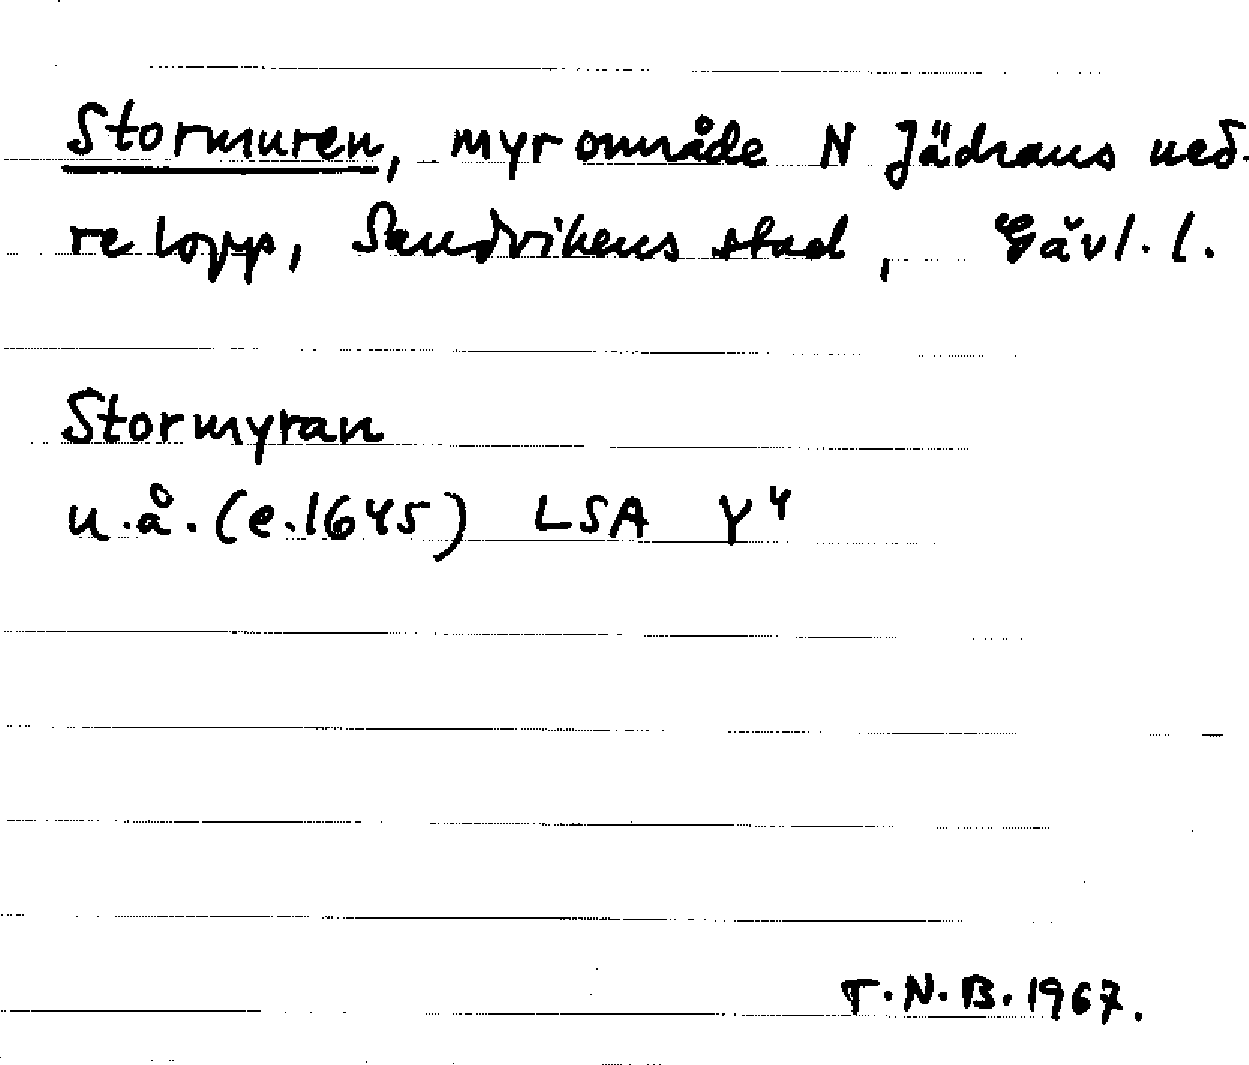 Stormuren, myrområde N Jädrans ned-
re lopp, Sandvikens stad, Gävl. l.
Stormyran
u.å. (e.1645) LSA Y4
T.N.B. 1967.